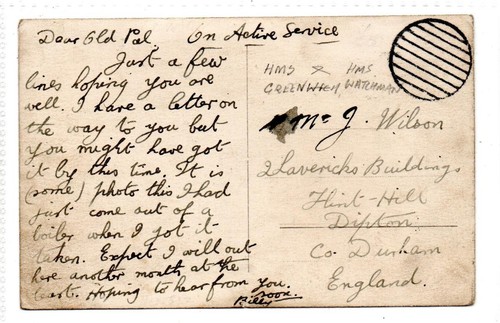 Dear Old Pal, On Active Service
Just a few
lines hoping you are
well. I have a letter on
the way to you but
you might have got
it by this time. It is
(some) photo this I had
just come out of a
boiler when I got it
taken. Expect I will out
here another month at the
least. Hoping to hear from you
soon.
Billy
HMS & HMS
GREENWICH WATCHMAN
Mr J. Wilson
2 Lavericks Buildings
Flint-Hill
Dipton
Co. Durham
England.